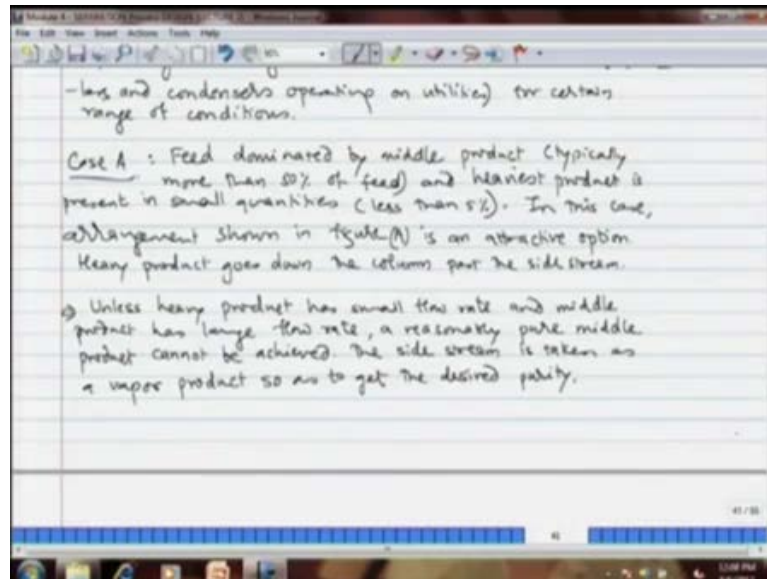 Module 4 - SEPARATION Process DESIGN (LECTURE 2) - Windows Journal
File Edit View Insert Actions Tools Help
-lers and condensers operating on utilities) for certain
range of conditions.
Case A : Feed dominated by middle product (typically
more than 50% of feed) and heaviest product is
present in small quantities (less than 5%). In this case,
arrangement shown in figure (A) is an attractive option
Heavy product goes down the column past the side stream.
⇒ Unless heavy product has small flow rate and middle
product has large flow rate, a reasonably pure middle
product cannot be achieved. The side stream is taken as
a vapor product so as to get the desired purity.
12:08 PM